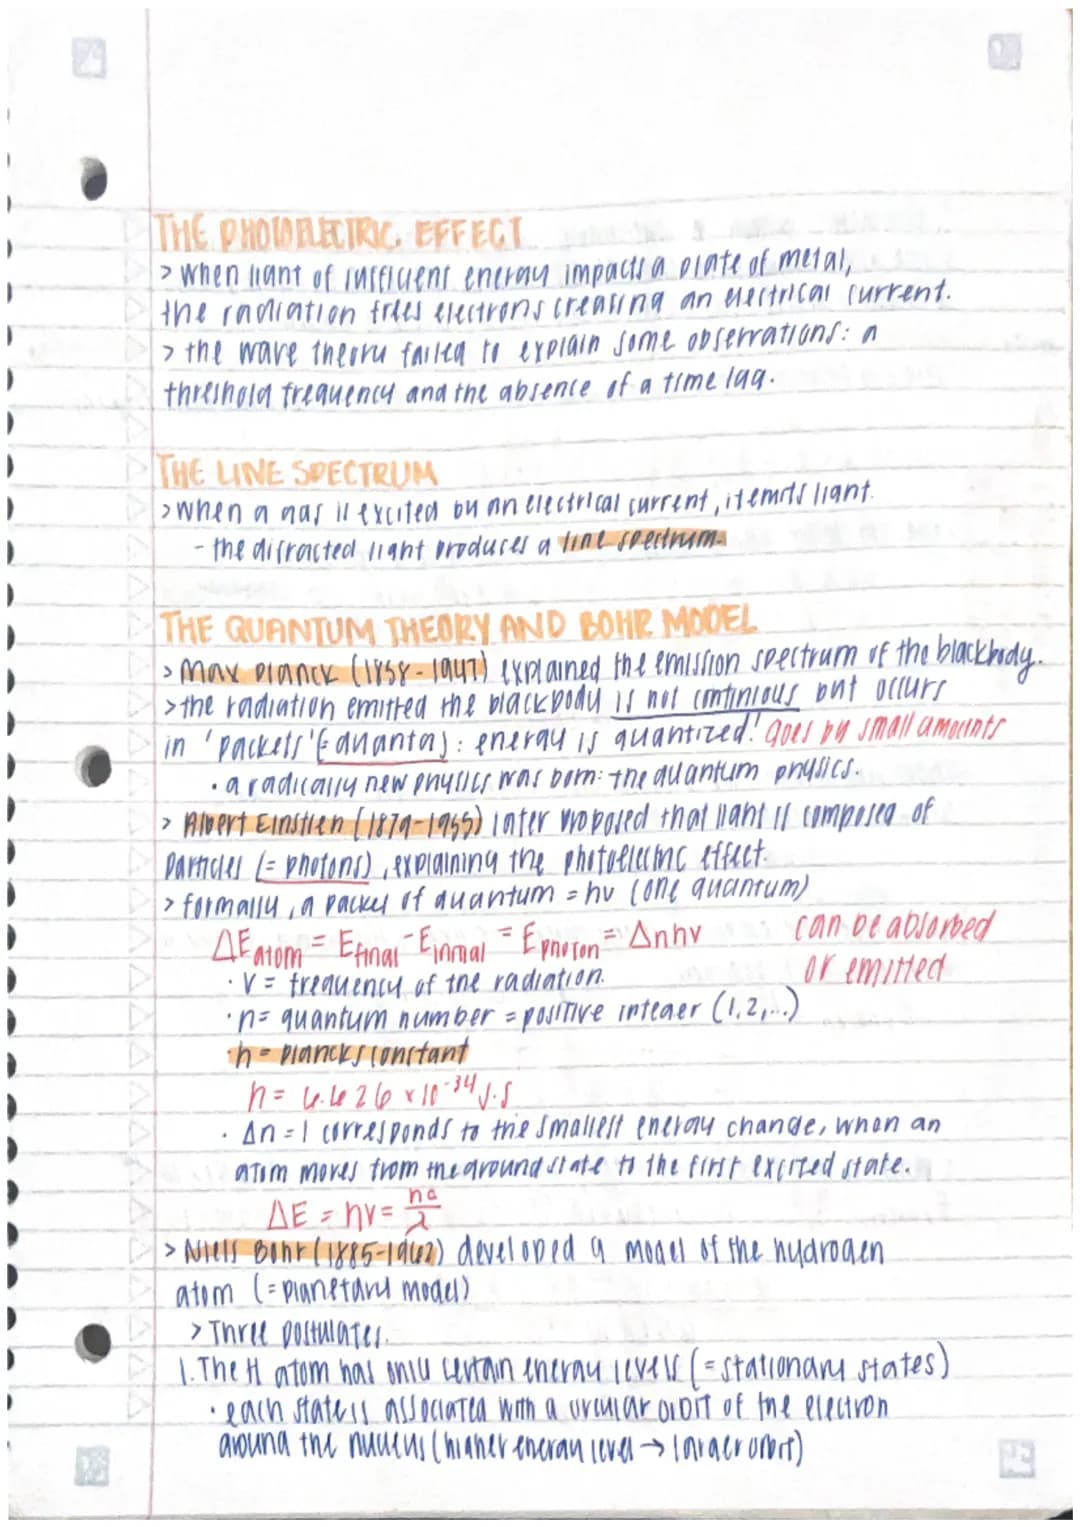 THE PHOTOELECTRIC EFFECT
> When light of sufficient energy impacts a plate of metal,
the radiation frees electrons creating an electrical current.
> the wave theory failed to explain some observations: a
threshold frequency and the absence of a time lag.
THE LINE SPECTRUM
> When a gas is excited by an electrical current, it emits light.
- the difracted light produces a line spectrum.
THE QUANTUM THEORY AND BOHR MODEL
> Max Planck (1858-1947) explained the emission spectrum of the blackbody.
> the radiation emitted the blackbody is not continious but occurs
in 'packets' (= quanta): energy is quantized! goes by small amounts
• a radically new physics was born: the quantum physics.
> Albert Einstien (1879-1955) later proposed that light is composed of
particles (= photons), explaining the photoelectric effect.
> formally, a packet of quantum = hv (one quantum)
ΔE atom = E final - E initial = E photon = Δnhv can be absorbed
or emitted
• v = frequency of the radiation.
• n = quantum number = positive integer (1,2,...)
• h = plancks constant
h = 6.626 x 10^-34 J·s
• Δn = 1 corresponds to the smallest energy change, when an
atom moves from the ground state to the first excited state.
ΔE = hv = hc/λ
> Niels Bohr (1885-1962) developed a model of the hydrogen
atom (= planetary model)
> Three postulates.
1. The H atom has only certain energy levels (= stationary states)
• each state is associated with a circular orbit of the electron
around the nucleus (higher energy level → larger orbit)